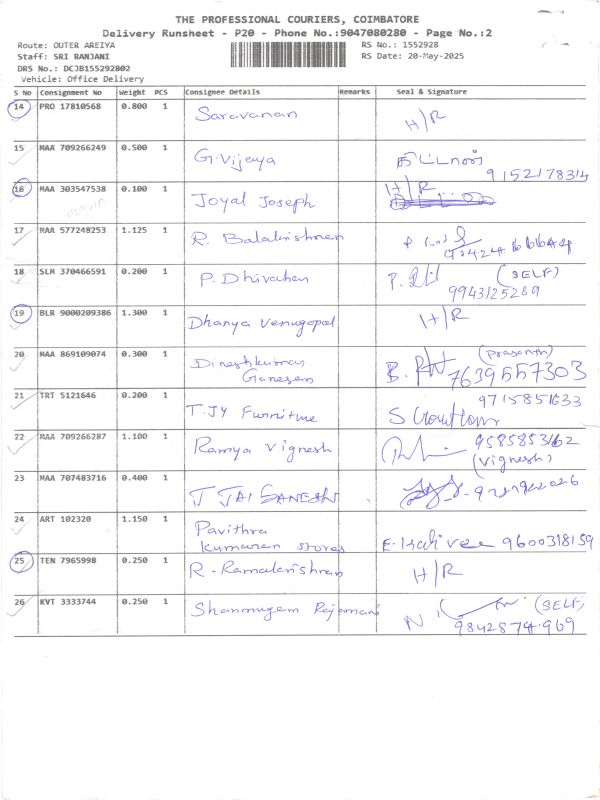 THE PROFESSIONAL COURIERS, COIMBATORE
Delivery Runsheet - P20 - Phone No.:9047080280 - Page No.:2
Route: OUTER AREIYA RS No.: 1552928
Staff: SRI RANJANI RS Date: 20-May-2025
DRS No.: DCJB155292802
Vehicle: Office Delivery
S No Consignment No Weight PCS Consignee Details Remarks Seal & Signature
14 PRO 17810568 0.800 1 Saravanan H/R
15 MAA 709266249 0.500 1 G.Vijaya 9152178314
16 MAA 303547538 0.100 1 Joyal Joseph H/R
17 MAA 577248253 1.125 1 R. Balakrishnan
18 SLM 370466591 0.200 1 P. Dhivahan (SELF)
9943125289
19 BLR 9000209386 1.300 1 Dhanya Venugopal H/R
20 MAA 869109074 0.300 1 Dineshkumar (prasanth)
Ganesan 7639557303
21 TRT 5121646 0.200 1 T.JY Furniture 9715851633
22 MAA 709266287 1.100 1 Ramya Vignesh 9585853162
(Vignesh)
23 MAA 707483716 0.400 1 T JAI GANESH
24 ART 102320 1.150 1 Pavithra
kumaran stores 9600318159
25 TEN 7965998 0.250 1 R. Ramakrishnan H/R
26 KVT 3333744 0.250 1 Shanmugam Rajamani N. (SELF)
9842874969